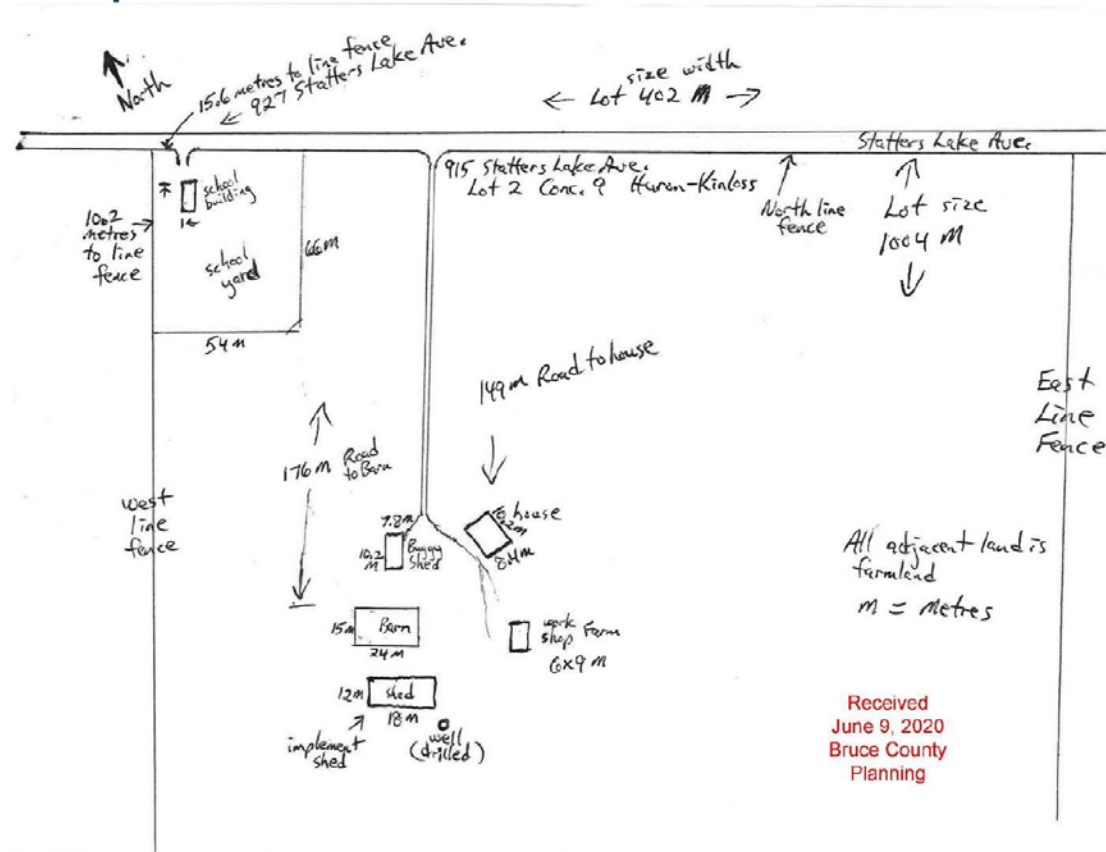 North
15.6 metres to line fence
← 927 Statters Lake Ave.
size width
← Lot 402 M →
Statters Lake Ave.
915 Statters Lake Ave.
Lot 2 Conc. 9 Huron-Kinloss
North line
fence
Lot size
1004 M
school
building
10.2
metres
to line
fence
school
yard
66 M
54 M
149 m Road to house
176 M Road
to Barn
East
Line
Fence
west
line
fence
house
8.4 M
7.8 m
10.2
M
Buggy
Shed
All adjacent land is
farmland
m = metres
15 m
Barn
24 M
work
shop Farm
6x9 M
12 m
shed
18 M
implement
shed
well
(drilled)
Received
June 9, 2020
Bruce County
Planning